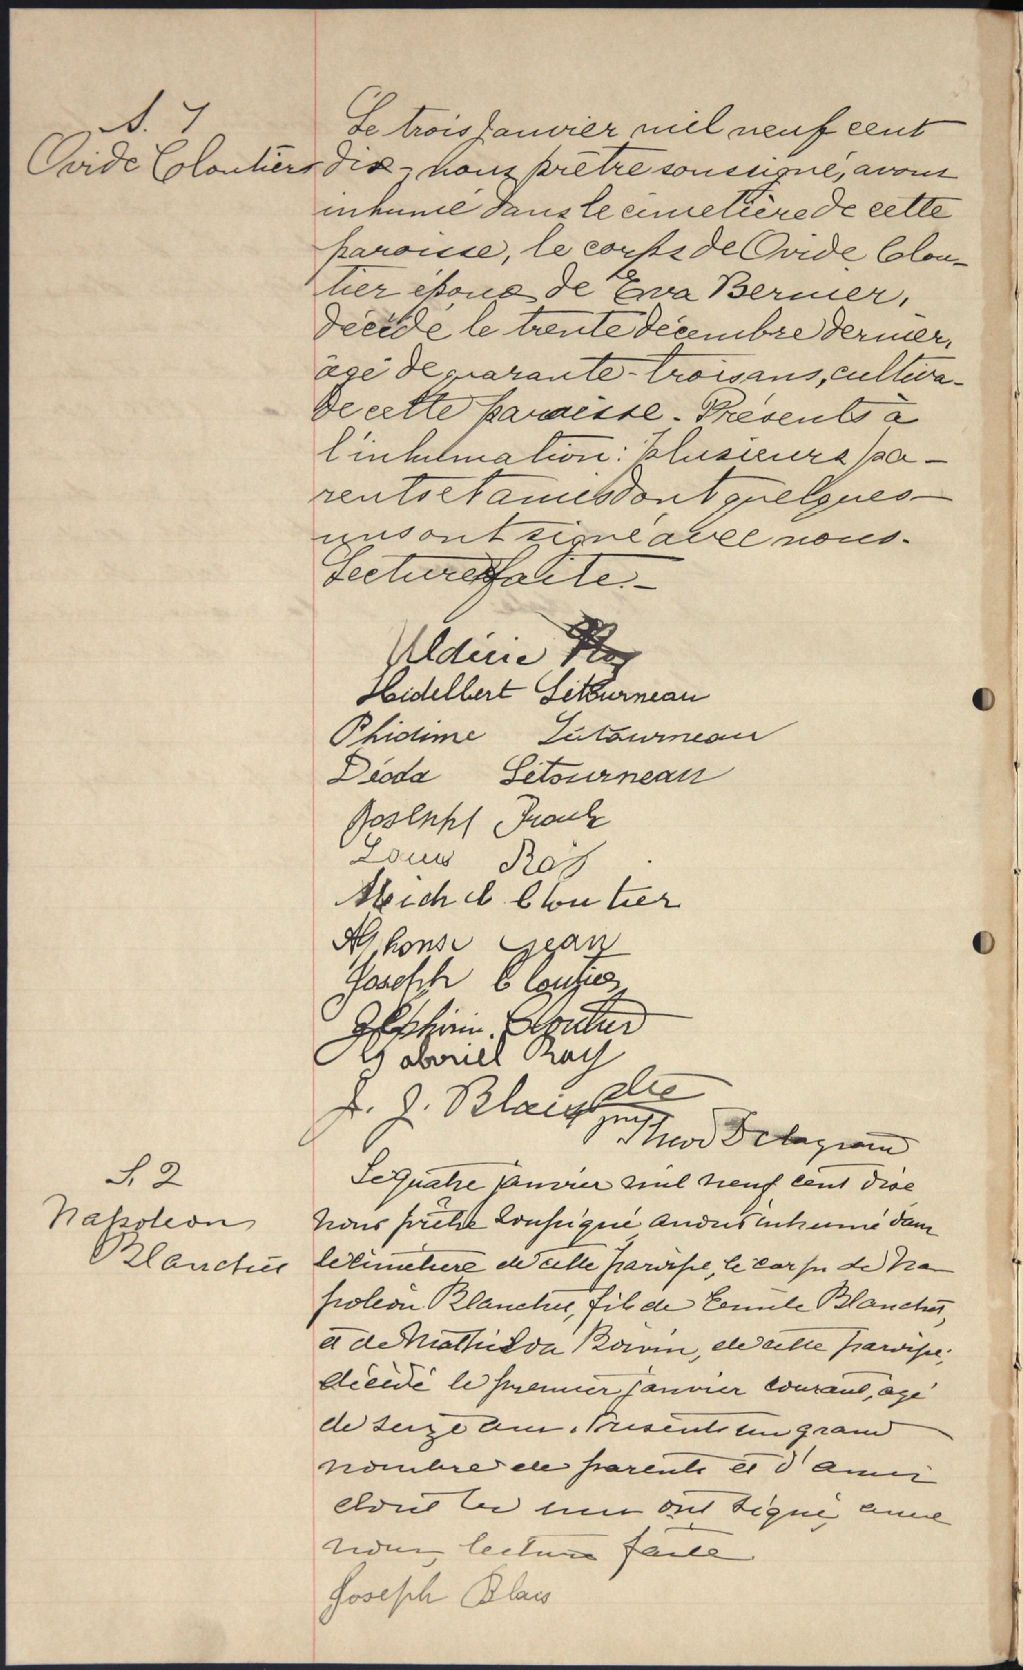 S. 1
Ovide Cloutiers
Le trois janvier mil neuf cent
dix, nous prêtre soussigné, avons
inhumé dans le cimetière de cette
paroisse, le corps de Ovide Clou-
tier époux de Eva Bernier,
décédé le trente décembre dernier,
âgé de quarante-trois ans, cultiva-
de cette paroisse. Présents à
l'inhumation: plusieurs pa-
rents et amis dont quelques-
uns ont signé avec nous.
Lecture faite.-
Uldéric Roy
Hidelbert Létourneau
Phidime Létourneau
Déoda Létourneau
Joseph
Louis Roy
Michel Cloutier
Alphonse Jean
Joseph Cloutier
Zéphirin Cloutier
Gabriel Roy
J. J. Blais ptre
Theo Delagrave
S. 2
Napoleon
Blanchet
Le quatre janvier mil neuf cent dix
nous prêtre soussigné avons inhumé dans
le cimetiere de cette paroisse, le corps de Na
poléon Blanchet, fils de Emile Blanchet,
et de Mathilda Boivin, de cette paroisse,
décédé le premier janvier courant, agé
de seize ans. Présents un grand
nombre de parents et d'amis
dont les uns ont signé avec
nous, lecture faite
Joseph Blais